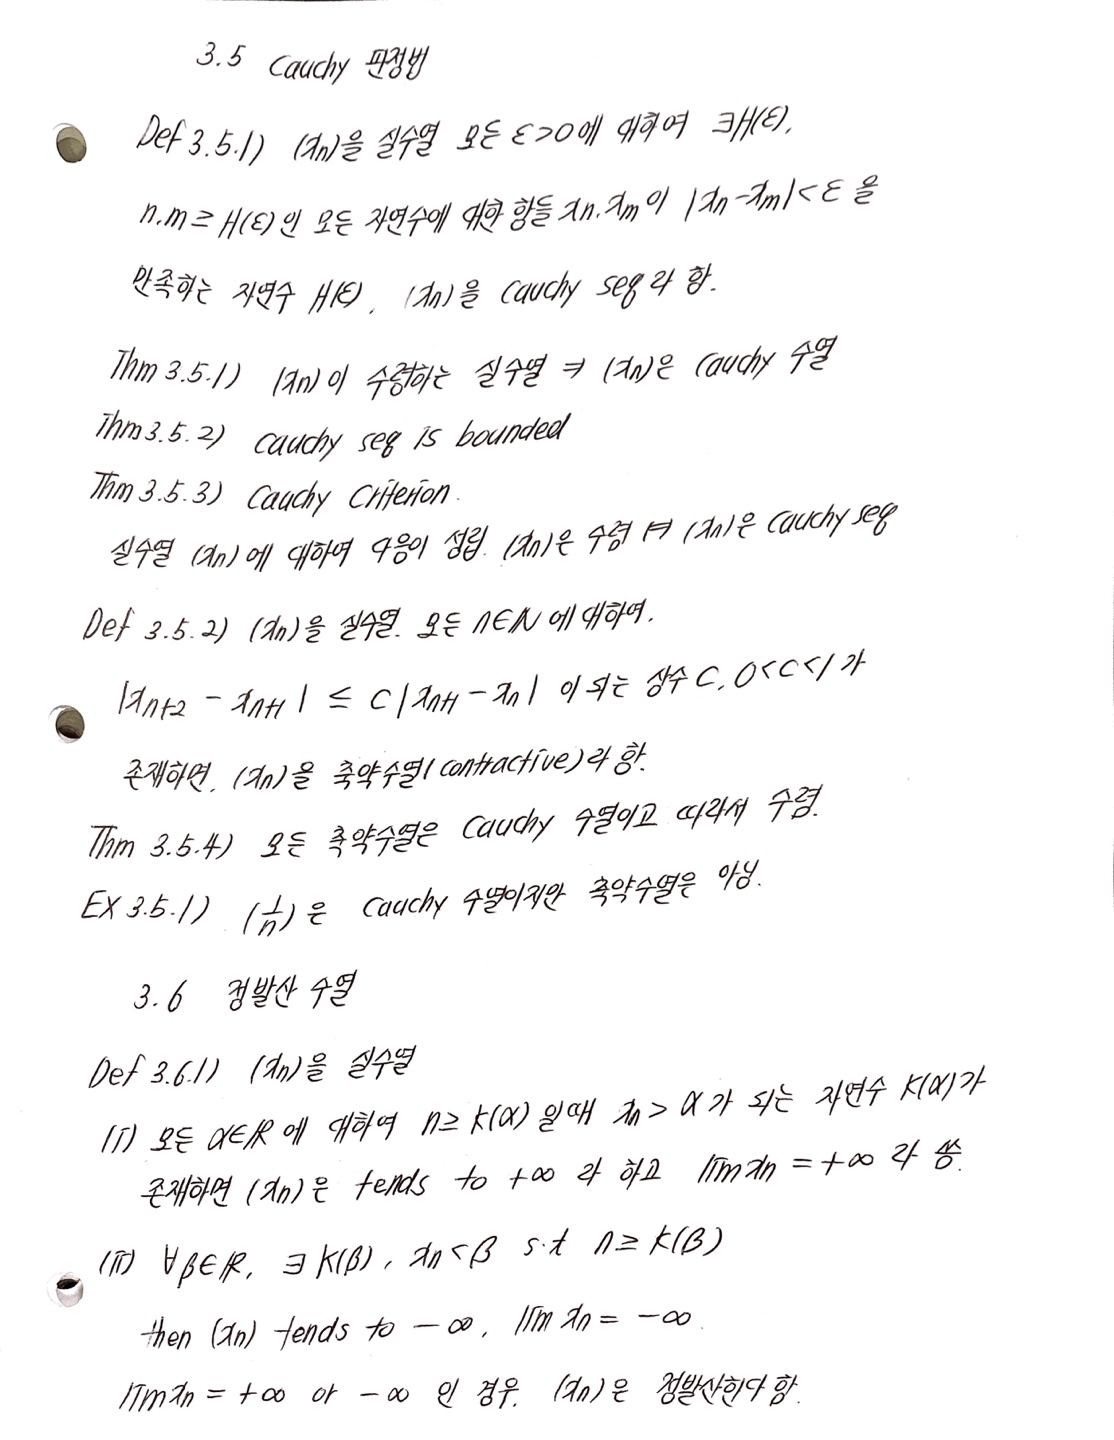 3.5 Cauchy 판정법
Def 3.5.1) (xn)을 실수열 모든 ε>0에 대하여 ∃H(ε),
n.m ≥ H(ε)인 모든 자연수에 대한 항들 xn.xm이 |xn-xm|<ε을
만족하는 자연수 H(ε), (xn)을 Cauchy seq라 함.
Thm 3.5.1) (xn)이 수렴하는 실수열 ⇒ (xn)은 Cauchy 수열
Thm 3.5.2) Cauchy seq is bounded
Thm 3.5.3) Cauchy Criterion.
실수열 (xn)에 대하여 다음이 성립. (xn)은 수렴 ⇔ (xn)은 Cauchy seq
Def 3.5.2) (xn)을 실수열. 모든 n∈N에 대하여.
|xn+2 - xn+1| ≤ C|xn+1 - xn| 이 되는 상수 C, 0<C<1가
존재하면, (xn)을 축약수열(contractive)라 함.
Thm 3.5.4) 모든 축약수열은 Cauchy 수열이고 따라서 수렴.
Ex 3.5.1) (1/n)은 Cauchy 수열이지만 축약수열은 아님.
3.6 정발산 수열
Def 3.6.1) (xn)을 실수열
(i) 모든 α∈R에 대하여 n≥K(α)일때 xn>α가 되는 자연수 K(α)가
존재하면 (xn)은 tends to +∞ 라 하고 lim xn = +∞ 라 씀.
(ii) ∀β∈R, ∃K(β), xn<β s.t n≥K(β)
then (xn) tends to -∞, lim xn = -∞.
lim xn = +∞ or -∞ 인 경우. (xn)은 정발산한다 함.